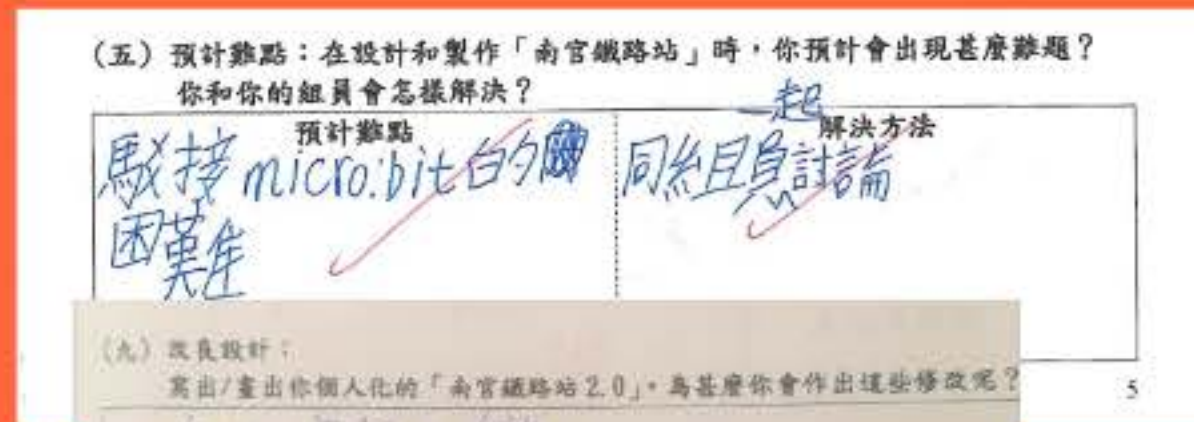 (五) 預計難點：在設計和製作「南官鐵路站」時，你預計會出現甚麼難題？
你和你的組員會怎樣解決？
預計難點
駁接 micro:bit 的
困難
解決方法
一起
同組員討論
(九) 改良設計：
寫出/畫出你個人化的「南官鐵路站 2.0」。為甚麼你會作出這些修改呢？
5